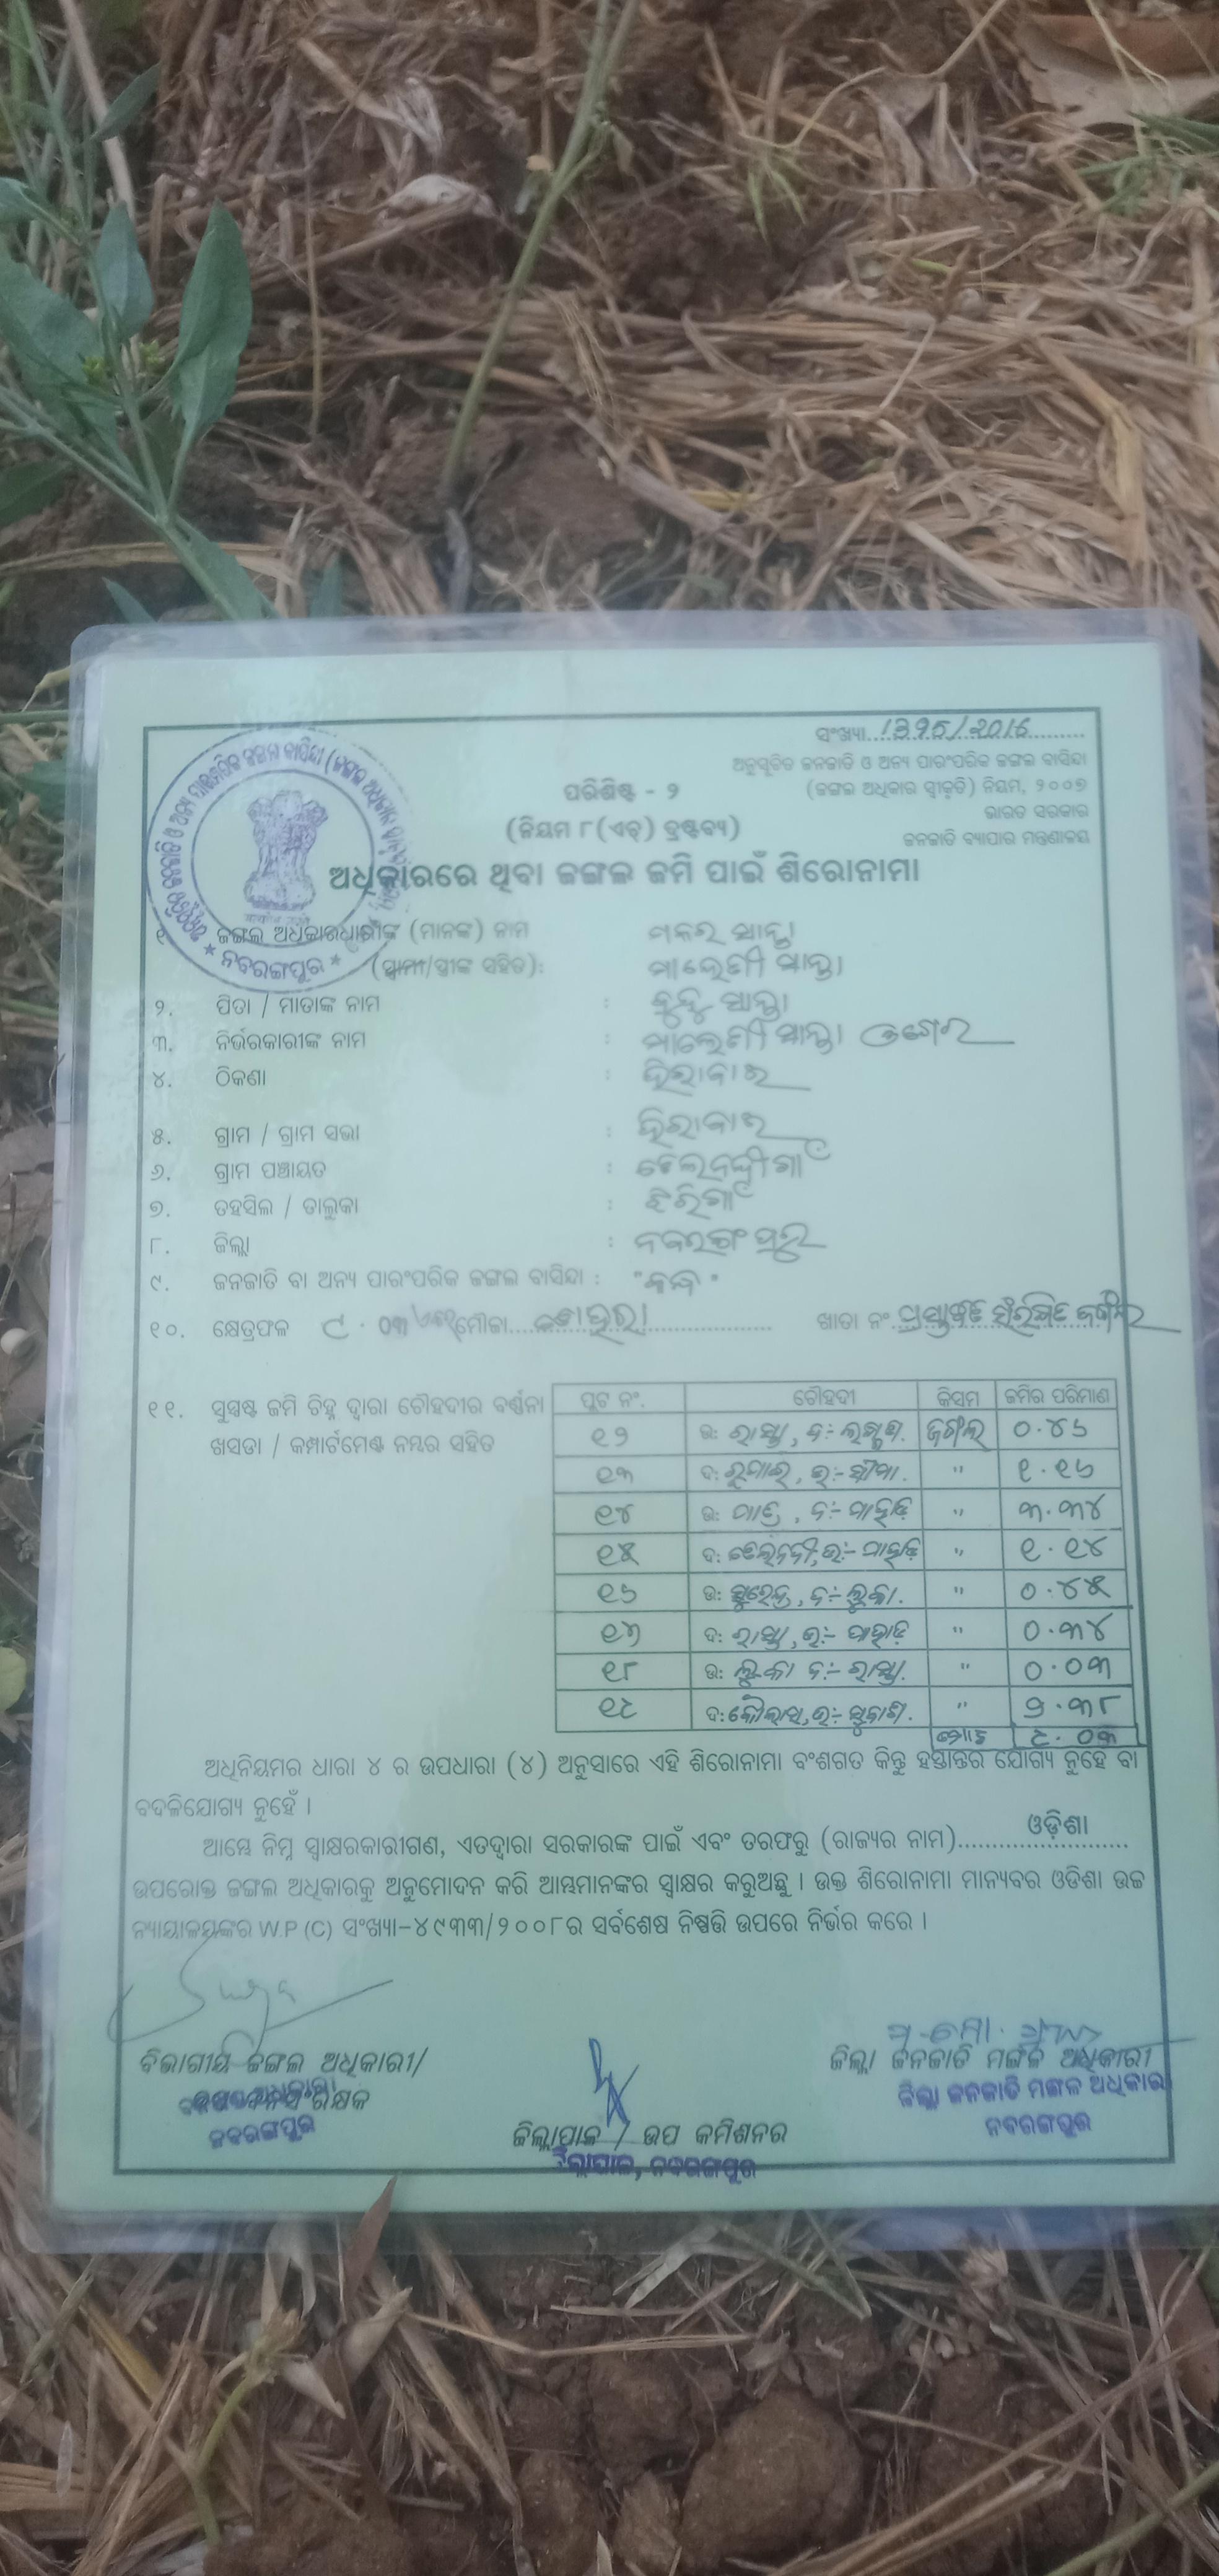 ସଂଖ୍ୟା...1395/2016...
ଅନୁସୂଚିତ ଜନଜାତି ଓ ଅନ୍ୟ ପାରଂପରିକ ଜଙ୍ଗଲ ବାସିନ୍ଦା
(ଜଙ୍ଗଲ ଅଧିକାର ସ୍ୱୀକୃତି) ନିୟମ, ୨୦୦୭
ଭାରତ ସରକାର
ଜନଜାତି ବ୍ୟାପାର ମନ୍ତ୍ରଣାଳୟ
ପରିଶିଷ୍ଟ - ୨
(ନିୟମ ୮(ଏଚ୍) ଦ୍ରଷ୍ଟବ୍ୟ)
ଅଧିକାରରେ ଥିବା ଜଙ୍ଗଲ ଜମି ପାଇଁ ଶିରୋନାମା
ନବରଙ୍ଗପୁର
୧ ଜଙ୍ଗଲ ଅଧିକାରଧାରୀଙ୍କ (ମାନଙ୍କ) ନାମ ମକର ସାନ୍ତା
(ସ୍ୱାମୀ/ସ୍ତ୍ରୀଙ୍କ ସହିତ): ସାନ୍ତା
୨. ପିତା / ମାତାଙ୍କ ନାମ : ସାନ୍ତା
୩. ନିର୍ଭରକାରୀଙ୍କ ନାମ : ସାନ୍ତା
୪. ଠିକଣା :
୫. ଗ୍ରାମ / ଗ୍ରାମ ସଭା :
୬. ଗ୍ରାମ ପଞ୍ଚାୟତ :
୭. ତହସିଲ / ତାଲୁକା : ଝରିଗାଁ
୮. ଜିଲ୍ଲା : ନବରଙ୍ଗପୁର
୯. ଜନଜାତି ବା ଅନ୍ୟ ପାରଂପରିକ ଜଙ୍ଗଲ ବାସିନ୍ଦା : "କନ୍ଧ"
୧୦. କ୍ଷେତ୍ରଫଳ ୯.୦୩ ମୌଜା ଖାତା ନଂ
୧୧. ସୁସ୍ପଷ୍ଟ ଜମି ଚିହ୍ନ ଦ୍ୱାରା ଚୌହଦୀର ବର୍ଣ୍ଣନା
ଖସଡା / କମ୍ପାର୍ଟମେଣ୍ଟ ନମ୍ବର ସହିତ
ପ୍ଲଟ ନଂ. ଚୌହଦୀ କିସମ ଜମିର ପରିମାଣ
୧୨ ଉ: ରାସ୍ତା, ଦ:- ଜଙ୍ଗଲ ୦.୪୬
୧୩ ଦ: ଉ:- " ୧.୧୬
୧୪ ଉ: ଦ:- " ୩.୩୪
୧୫ ଦ: ଉ:- " ୧.୧୪
୧୬ ଉ: ସୁରେନ୍ଦ୍ର, ଦ:- " ୦.୪୫
୧୭ ଦ: ରାସ୍ତା, ଉ:- ପାହାଡ଼ " ୦.୩୪
୧୮ ଉ: ଦ:- ରାସ୍ତା. " ୦.୦୩
୧୯ ଦ: କୈଳାସ, ଉ:- " ୨.୩୮
ମୋଟ ୯.୦୩
ଅଧିନିୟମର ଧାରା ୪ ର ଉପଧାରା (୪) ଅନୁସାରେ ଏହି ଶିରୋନାମା ବଂଶଗତ କିନ୍ତୁ ହସ୍ତାନ୍ତର ଯୋଗ୍ୟ ନୁହେଁ ବା
ବଦଳିଯୋଗ୍ୟ ନୁହେଁ ।
ଆମ୍ଭେ ନିମ୍ନ ସ୍ୱାକ୍ଷରକାରୀଗଣ, ଏତଦ୍ୱାରା ସରକାରଙ୍କ ପାଇଁ ଏବଂ ତରଫରୁ (ରାଜ୍ୟର ନାମ)...ଓଡ଼ିଶା...
ଉପରୋକ୍ତ ଜଙ୍ଗଲ ଅଧିକାରକୁ ଅନୁମୋଦନ କରି ଆମ୍ଭମାନଙ୍କର ସ୍ୱାକ୍ଷର କରୁଅଛୁ । ଉକ୍ତ ଶିରୋନାମା ମାନ୍ୟବର ଓଡିଶା ଉଚ୍ଚ
ନ୍ୟାୟାଳୟଙ୍କର W.P (C) ସଂଖ୍ୟା-୪୯୩୩/୨୦୦୮ର ସର୍ବଶେଷ ନିଷ୍ପତ୍ତି ଉପରେ ନିର୍ଭର କରେ ।
ବିଭାଗୀୟ ଜଙ୍ଗଲ ଅଧିକାରୀ/
ଉପ ବନସଂରକ୍ଷକ
ନବରଙ୍ଗପୁର
ଜିଲ୍ଲା ଜନଜାତି ମଙ୍ଗଳ ଅଧିକାରୀ
ଜିଲ୍ଲା ଜନଜାତି ମଙ୍ଗଳ ଅଧିକାରୀ
ନବରଙ୍ଗପୁର
ଜିଲ୍ଲାପାଳ / ଉପ କମିଶନର
ଜିଲ୍ଲାପାଳ, ନବରଙ୍ଗପୁର